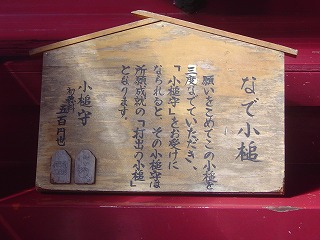 なで小槌
願いをこめてこの小槌を
三度なでていただき、
「小槌守」をお受けに
なられると その小槌守は
所願成就の「打出の小槌」
となります。
小槌守
初穂料 五百円也